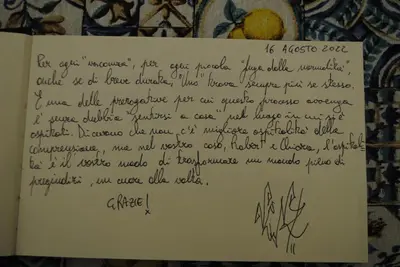 16 AGOSTO 2022
Per ogni "vacanza", per ogni piccola "fuga dalla normalità",
anche se di breve durata, "uno" trova sempre più se stesso.
È una delle prerogative per cui questo processo avvenga
è senza dubbio "sentirsi a casa" nel luogo in cui si è
ospitati. Dicevano che non c'è migliore ospitalità della
comprensione, ma nel vostro caso, Robert e Chiara, l'ospitali
tà è il vostro modo di trasformare un mondo pieno di
pregiudizi, un cuore alla volta.
GRAZIE!